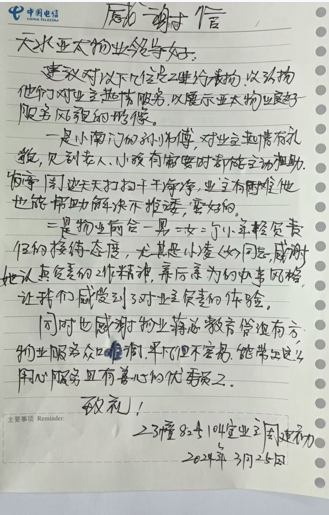 中国电信
CHINA TELECOM
感谢信
天水亚太物业领导好:
建议对以下几位员工进行表扬,以弘扬
他们对业主热情服务,以展示亚太物业良好
服务风貌的形像。
一是小南门的孙师傅,对业主热情有礼
貌,见到老人、小孩有需要时都能主动帮助,
周边天天打扫干干净净,业主有困难他
也能帮助解决不推诿,蛮好的。
二是物业前台一男一女二个小年轻负责
任的接待态度,尤其是小凌(女)同志,感谢
她认真负责的工作精神,
让我们感受到了对业主负责的体验。
同时也感谢物业领导教育管理有方,
物业服务众口难调,实不容易,能带出这么
用心服务且有善心的优秀员工。
致礼!
主要事项 Reminder
23幢82号104室业主周建
2024年3月25日